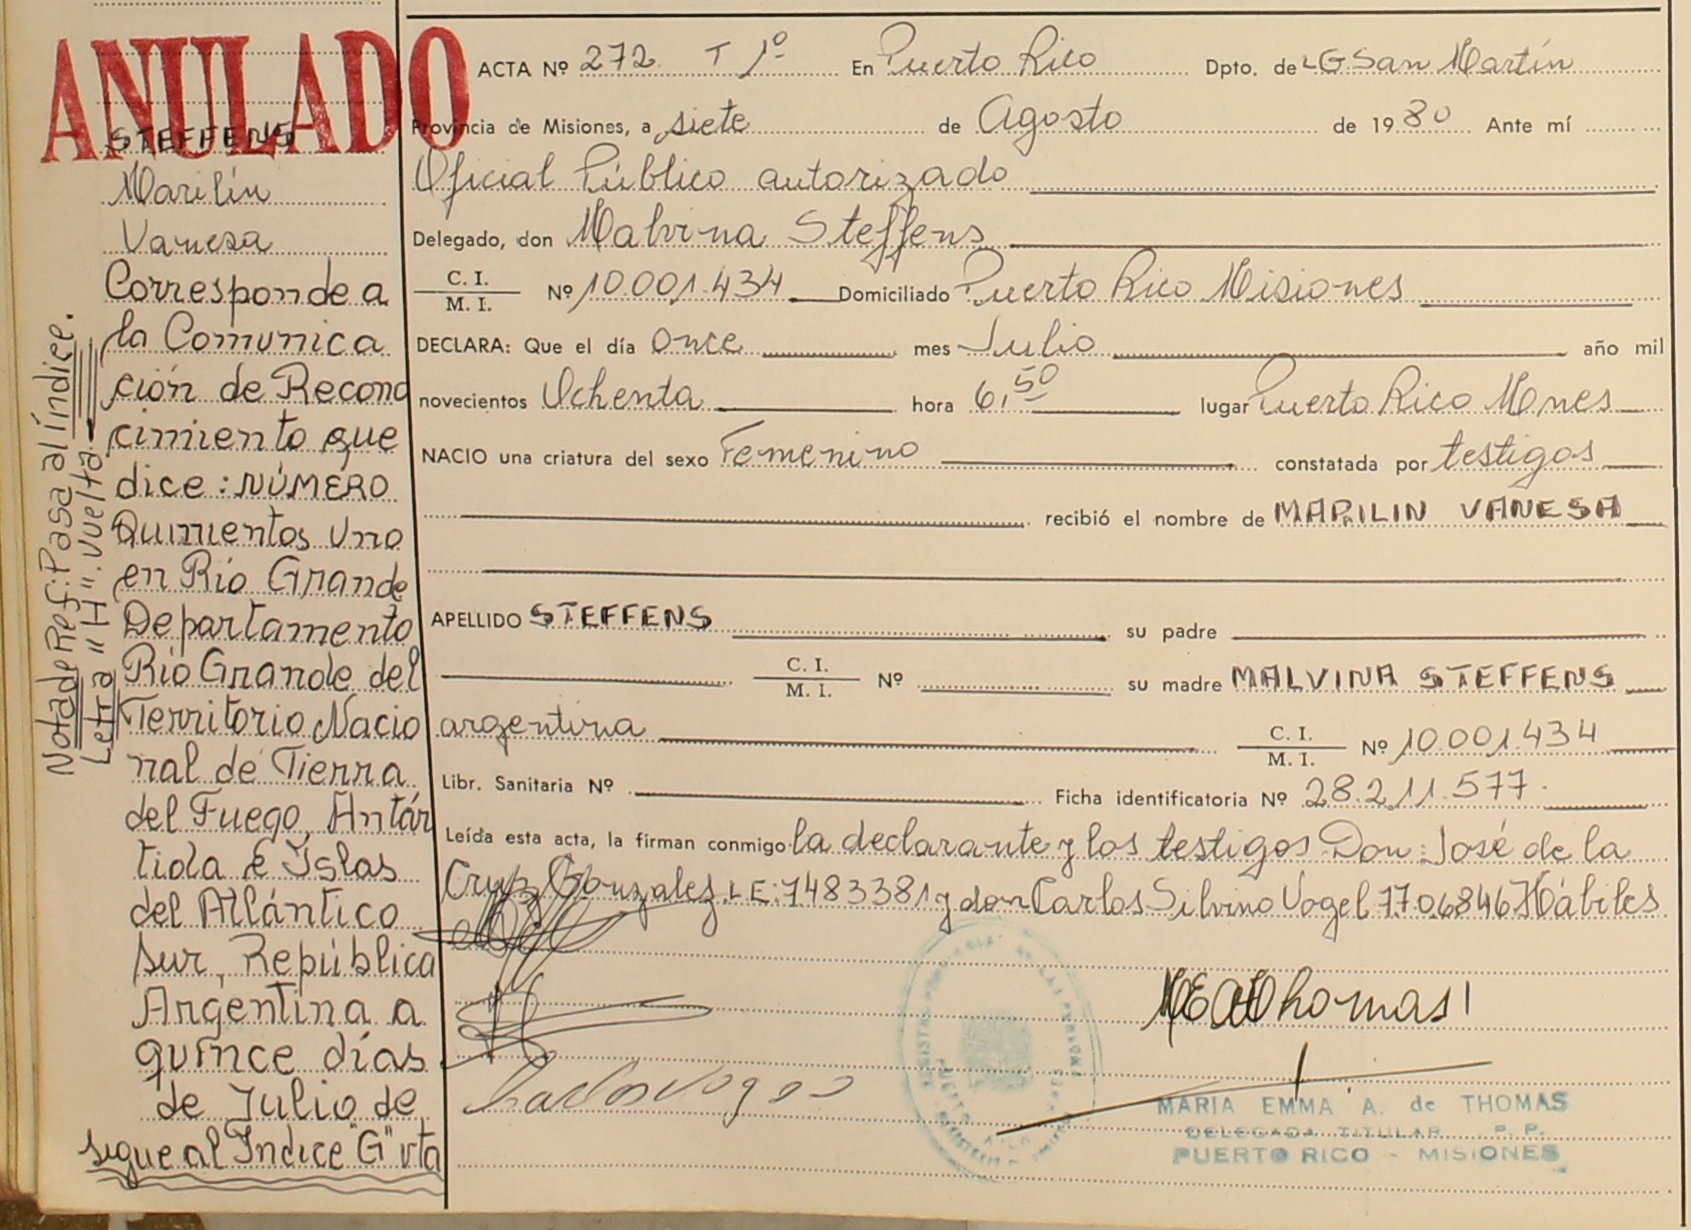 ANULADO
STEFFENS
Marilín
Vanesa
Corresponde a
la Comunica
ción de Recono
cimiento que
dice: NÚMERO
Quinientos Uno
en Río Grande
Departamento
Río Grande del
Territorio Nacio
nal de Tierra
del Fuego, Antár
tida e Islas
del Atlántico
Sur, República
Argentina a
quince días
de Julio de
sigue al Indice "G" vta
Nota de Ref: Pasa al índice.
Letra "H". vuelta.
ACTA Nº 272 T 1º En Puerto Rico Dpto. de LG San Martín
Provincia de Misiones, a siete de Agosto de 1980 Ante mí
Oficial Público autorizado
Delegado, don Malvina Steffens
C. I.
M. I. Nº 10.001.434 Domiciliado Puerto Rico Misiones
DECLARA: Que el día once mes Julio año mil
novecientos Ochenta hora 6,50 lugar Puerto Rico Mnes
NACIO una criatura del sexo Femenino constatada por testigos
recibió el nombre de MARILIN VANESA
APELLIDO STEFFENS su padre
C. I.
M. I. Nº su madre MALVINA STEFFENS
argentina C. I.
M. I. Nº 10.001.434
Libr. Sanitaria Nº Ficha identificatoria Nº 28.211.577.
Leída esta acta, la firman conmigo la declarante y los testigos Don: José de la
Cruz Gonzalez L.E: 7483381 y don Carlos Silvino Vogel 7.706.846 Hábiles
Carlos Vogel
MARIA EMMA A. de THOMAS
DELEGADA TITULAR P. P.
PUERTO RICO - MISIONES